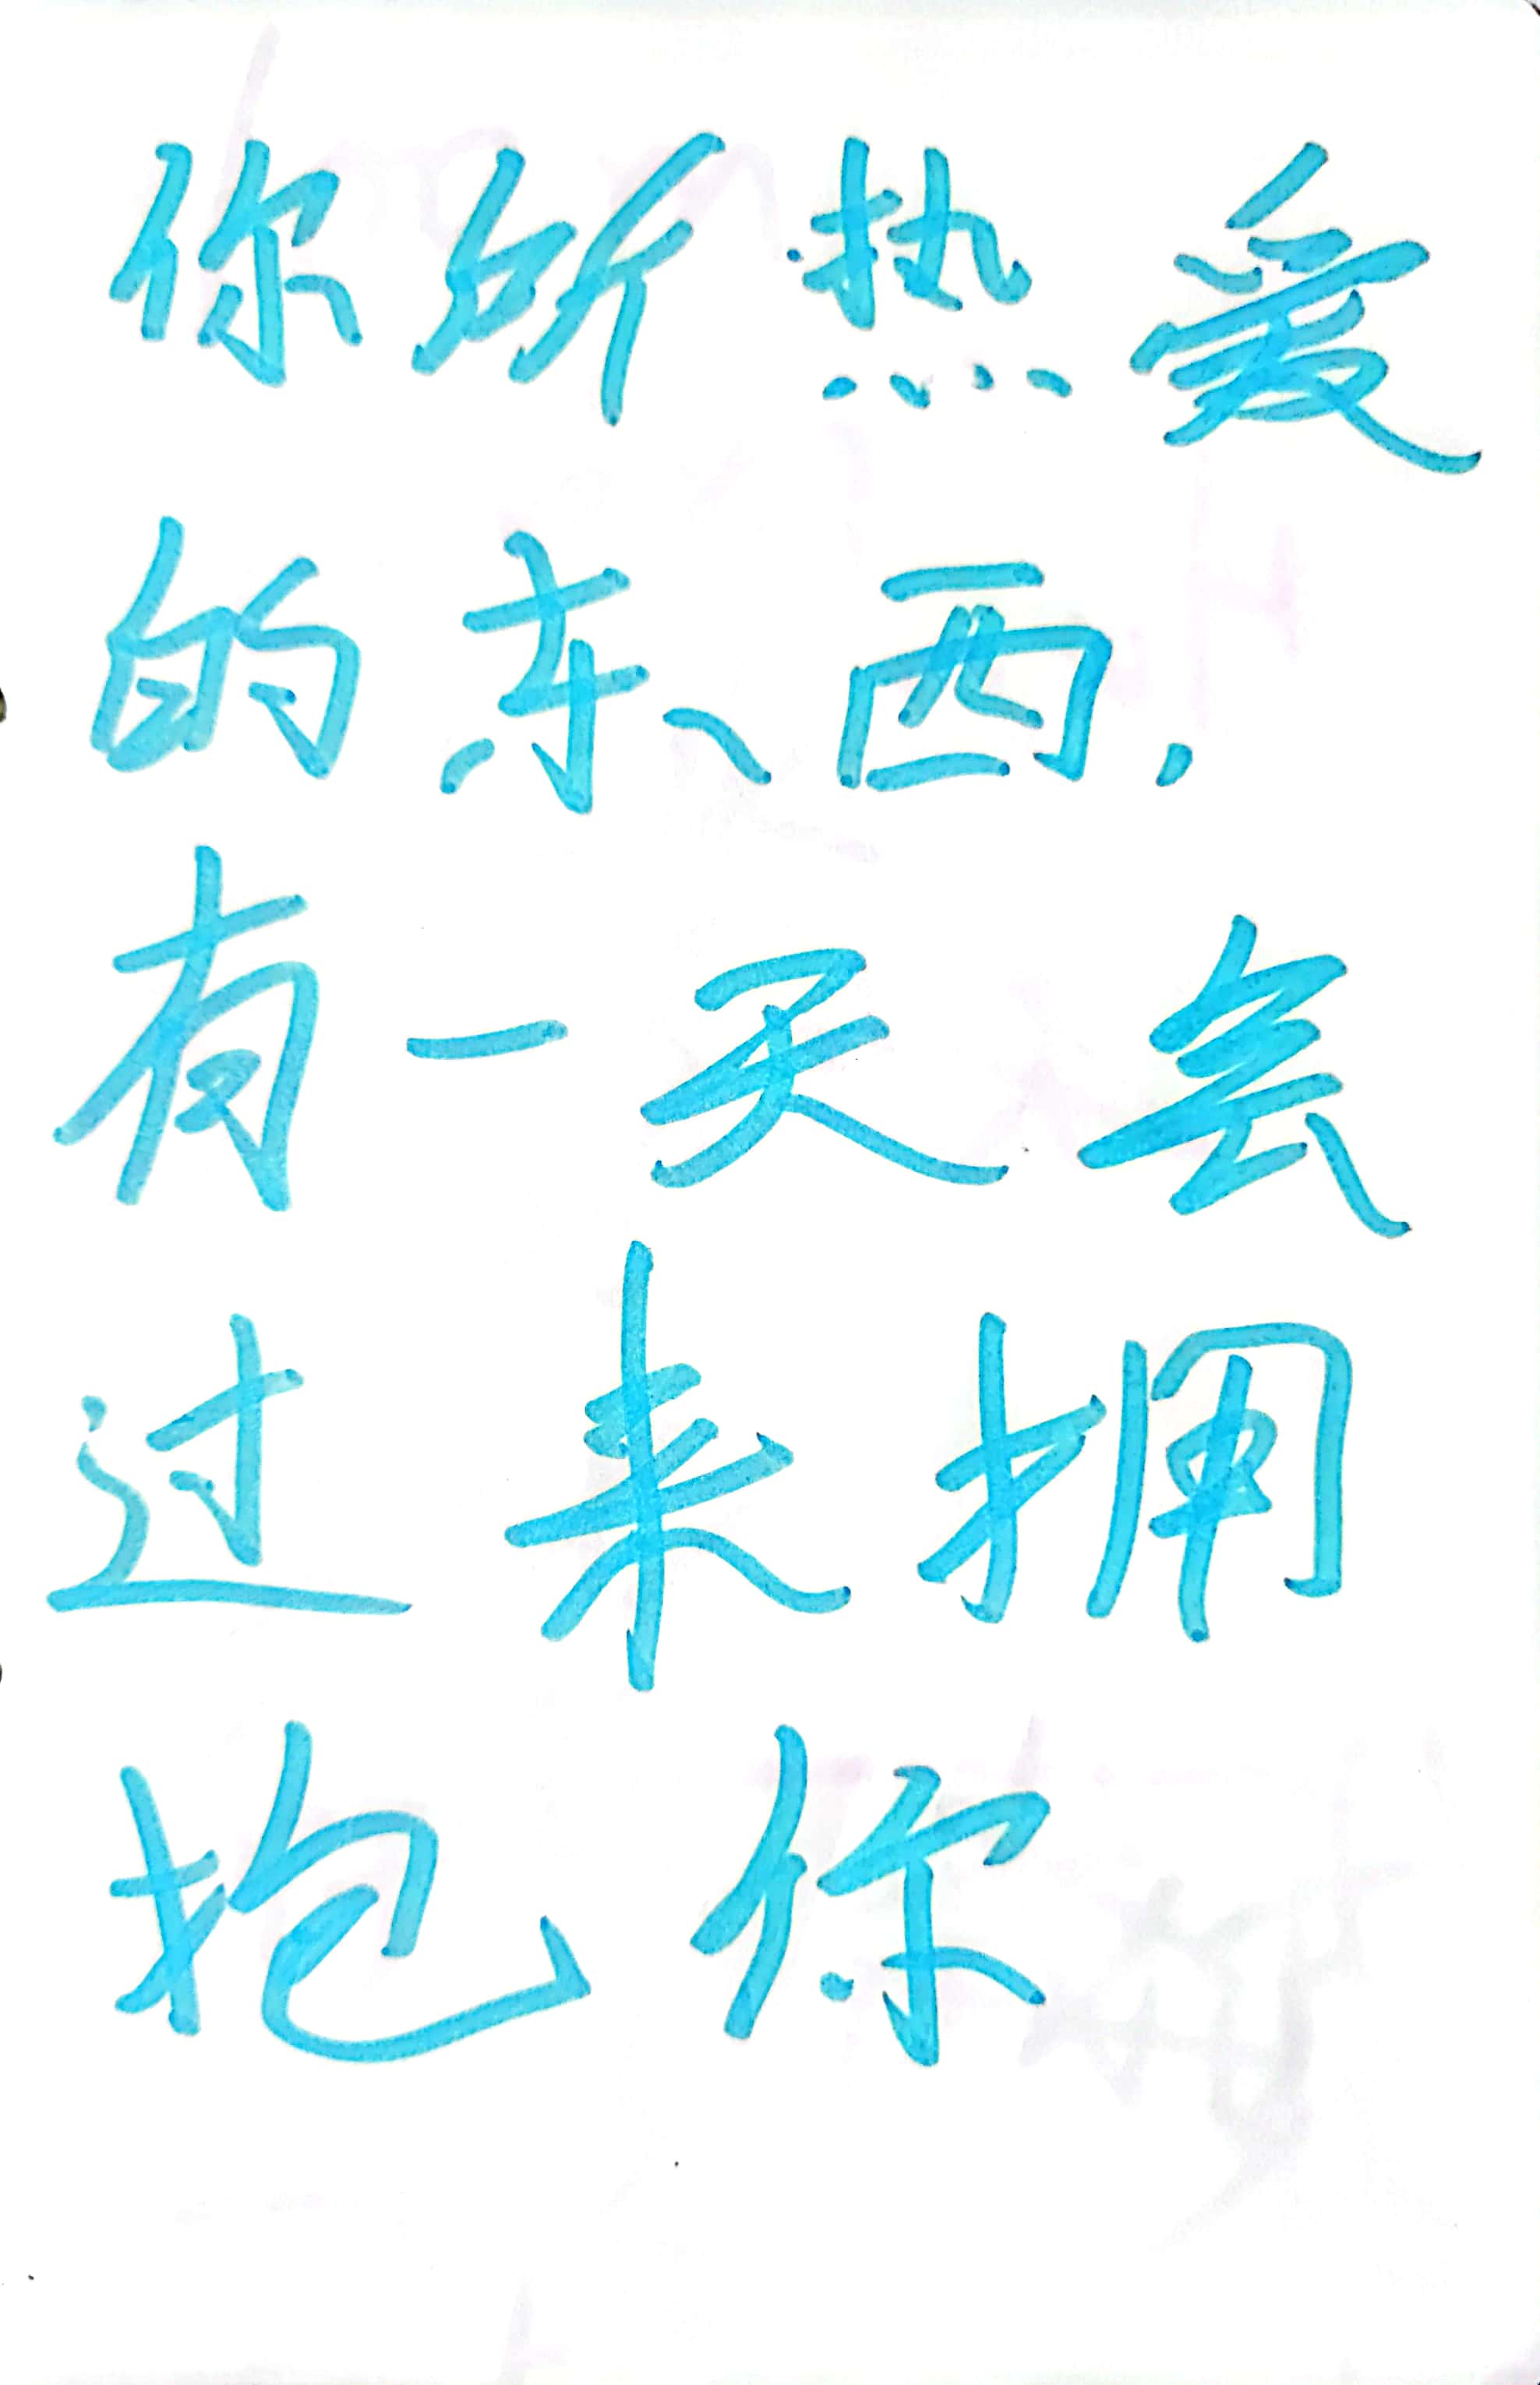 你所热爱
的东西，
有一天会
过来拥
抱你